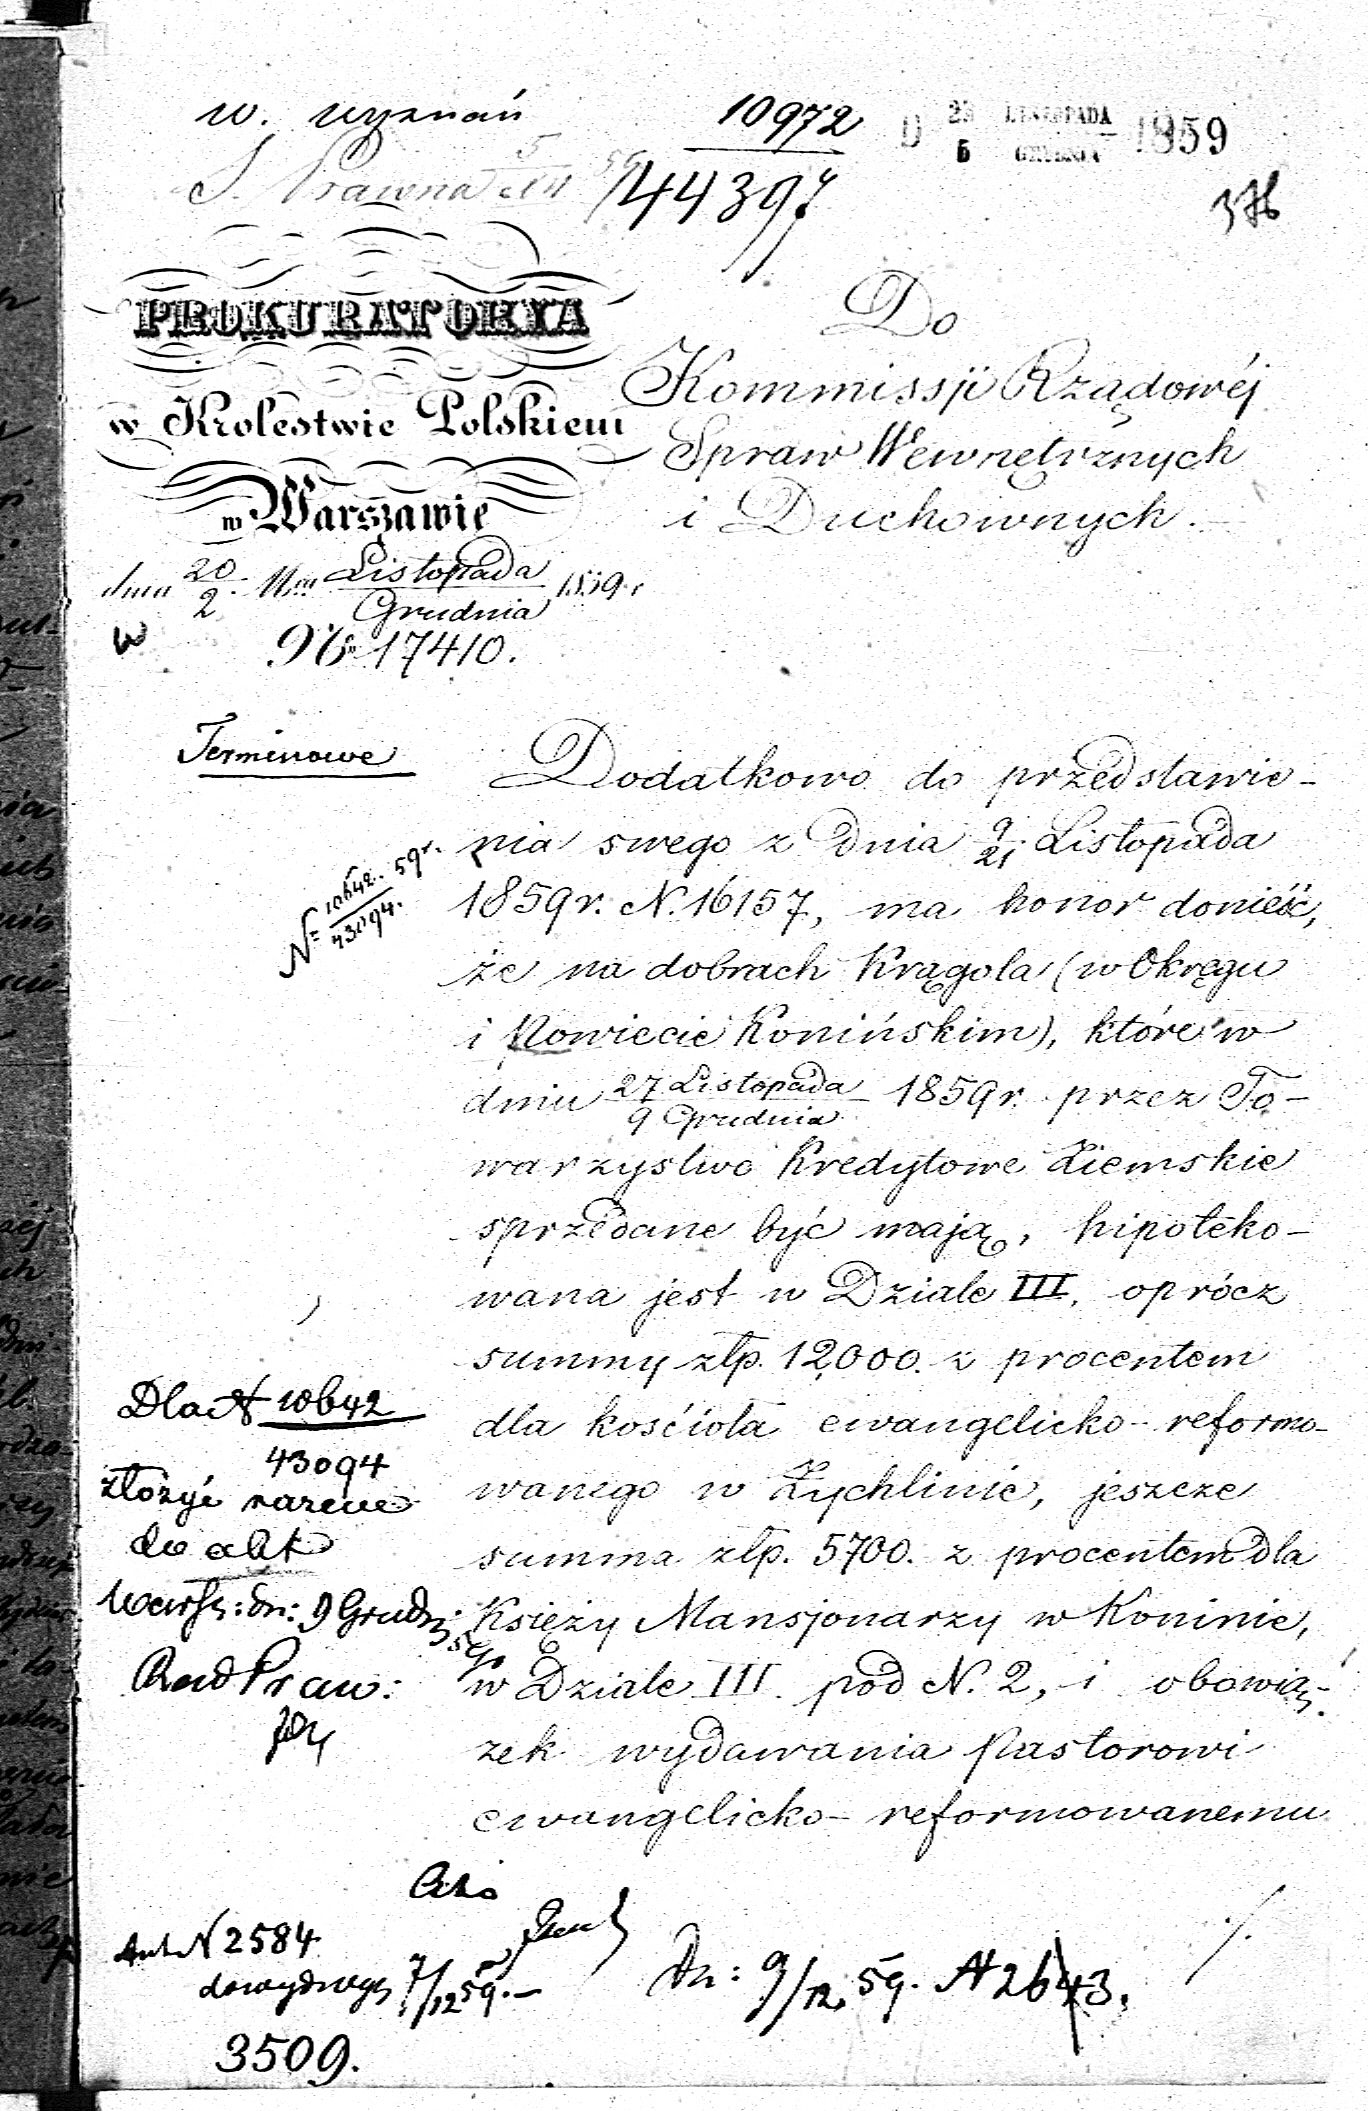 w. wyznań
10972
44397
D 23 LISTOPADA 1859
5 GRUDNIA
S. Prawna 5
376
PROKURATORYA
w Krolestwie Polskiem
w Warszawie
dnia 20/2 Listopada/Grudnia 1859 r
No 17410.
Do
Kommissji Rządowéj
Spraw Wewnętrznych
i Duchownych.
Terminowe
N= 10642/43094. 59 r.
Dodatkowo do przedstawie-
nia swego z dnia 9/21 Listopada
1859 r. N. 16157, ma honor donieść,
że na dobrach Krągola (w Okręgu
i Powiecie Konińskim), które w
dniu 27 Listopada/9 Grudnia 1859 r. przez To-
warzystwo Kredytowe Ziemskie
sprzedane być mają, hipoteko-
wana jest w Dziale III, oprócz
summy złp. 12,000. z procentem
dla kościoła ewangelicko-reformo-
wanego w Żychlinie, jeszcze
summa złp. 5700. z procentem dla
Księży Mansjonarzy w Koninie,
w Dziale III pod N. 2, i obowią-
zek wydawania Pastorowi
ewangelicko-reformowanemu
Dla N 10642
43094
złożyć razem
do akt
Warsz: dn: 9 Grudn: 59 r
Rad Praw:
N 2584
7/12 59.
3509.
Dn: 9/12 59. N 2643.
./.